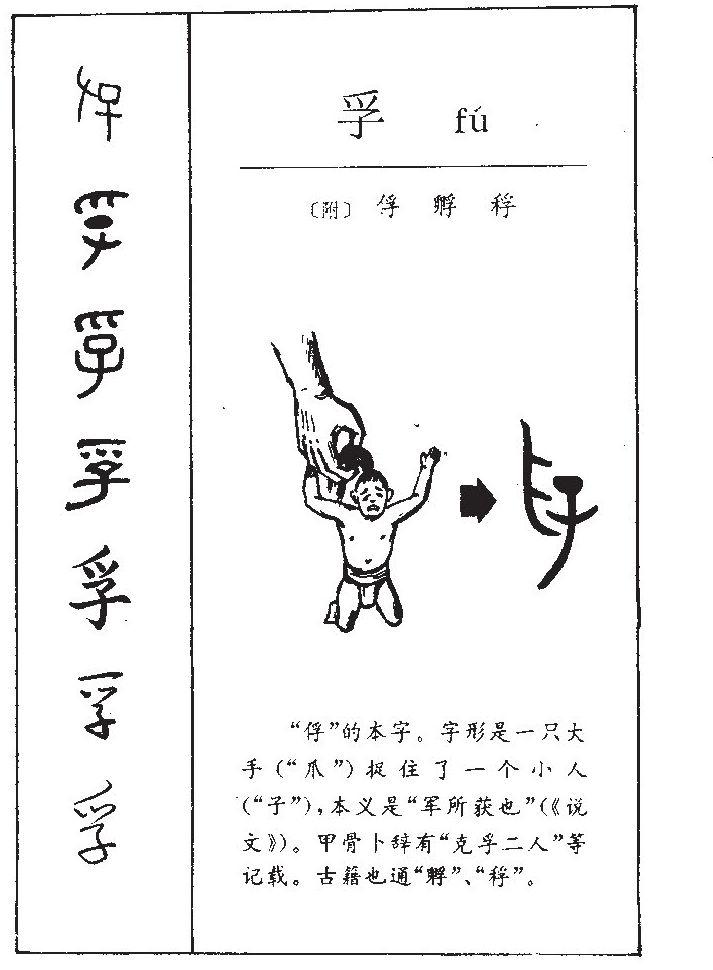 孚 fú
〔附〕 俘 孵 稃
“俘”的本字。字形是一只大
手(“爪”)捉住了一个小人
(“子”),本义是“军所获也”(《说
文》)。甲骨卜辞有“克孚二人”等
记载。古籍也通“孵”、“稃”。
孚
孚
孚
孚
孚
孚
孚